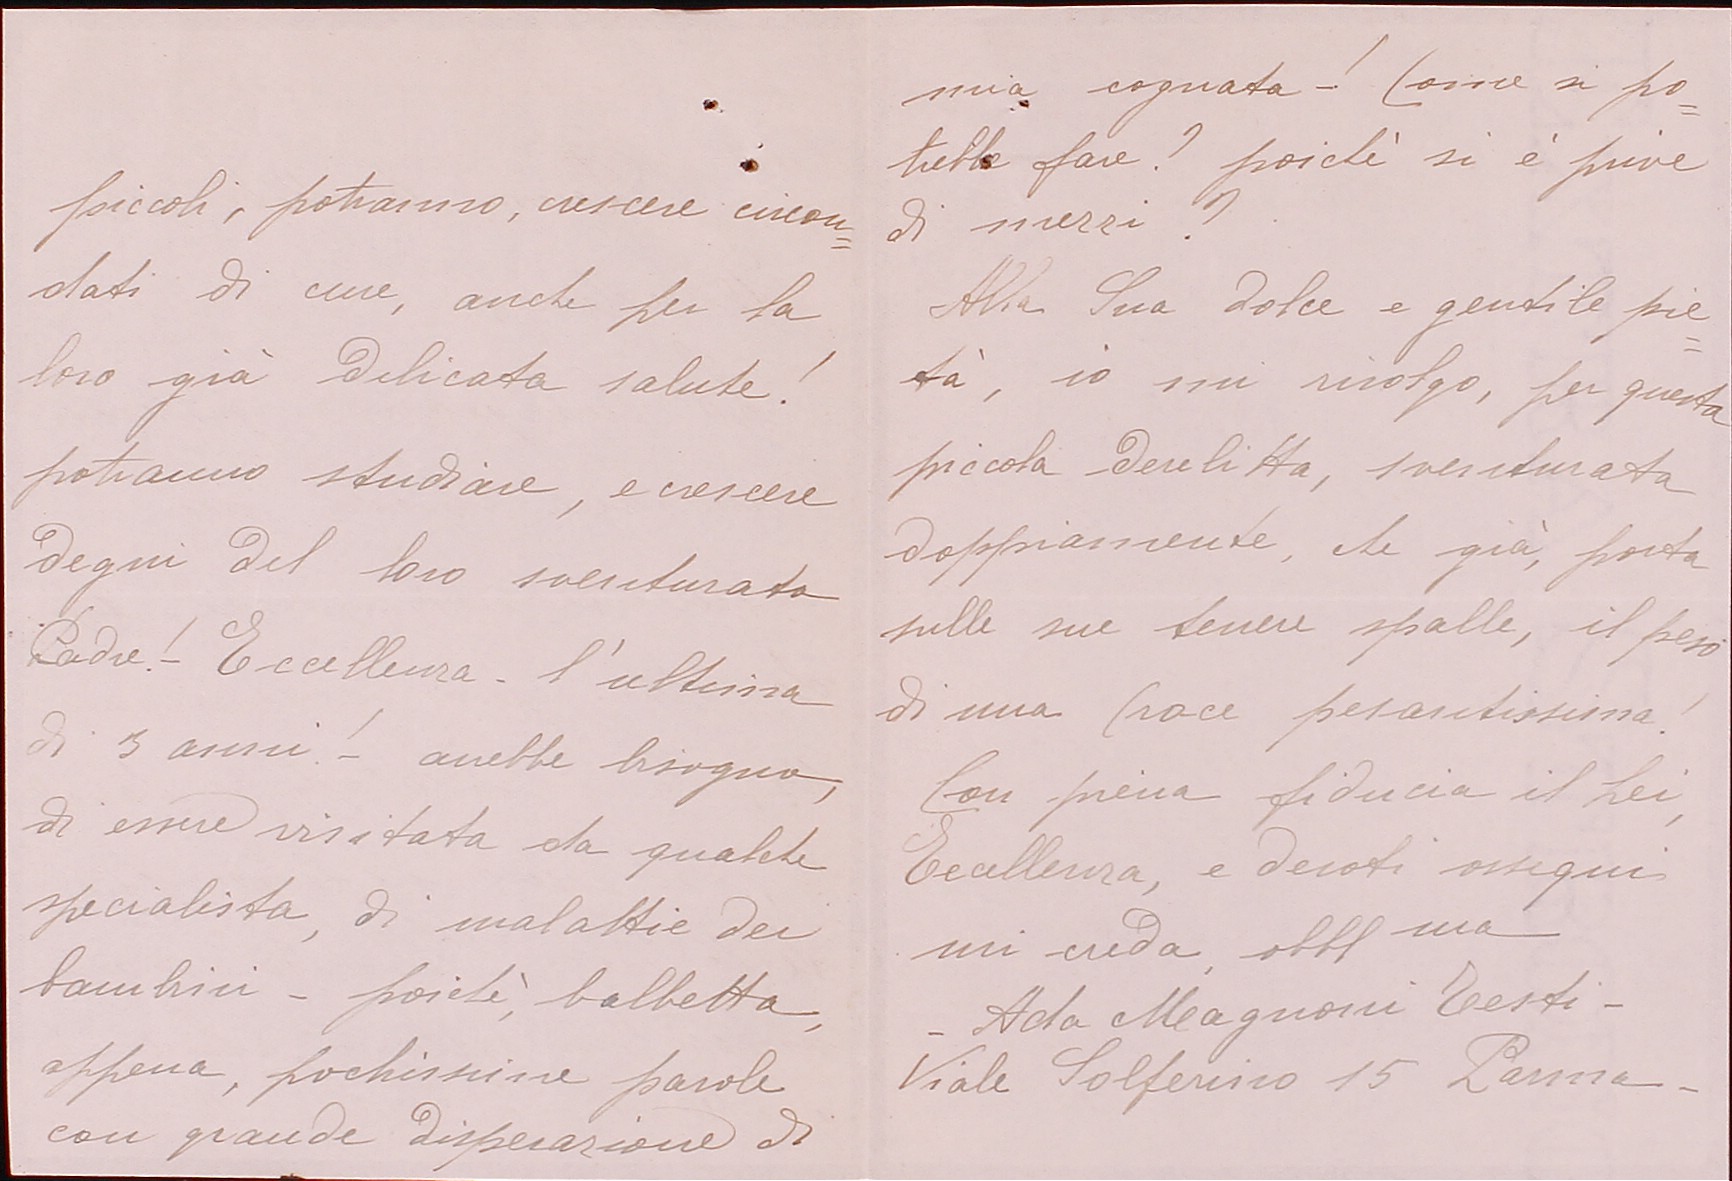 piccoli, potranno, crescere circon=
dati di cure, anche per la
loro già delicata salute!
potranno studiare, e crescere
degni del loro sventurato
Padre! - Eccellenza - l'ultima
di 3 anni! - avrebbe bisogno,
di essere visitata da qualche
specialista, di malattie dei
bambini - poichè, balbetta,
appena, pochissime parole
con grande disperazione di
mia cognata - ! Come si po=
trebbe fare? poichè si è prive
di mezzi?
Alla Sua dolce e gentile pie=
tà, io mi rivolgo, per questa
piccola derelitta, sventurata
doppiamente, che già, porta
sulle sue tenere spalle, il peso
di una Croce pesantissima!
Con piena fiducia il Lei,
Eccellenza, e devoti ossequi
mi creda, obbl ma
- Ada Magnoni Testi -
Viale Solferino 15 Parma -